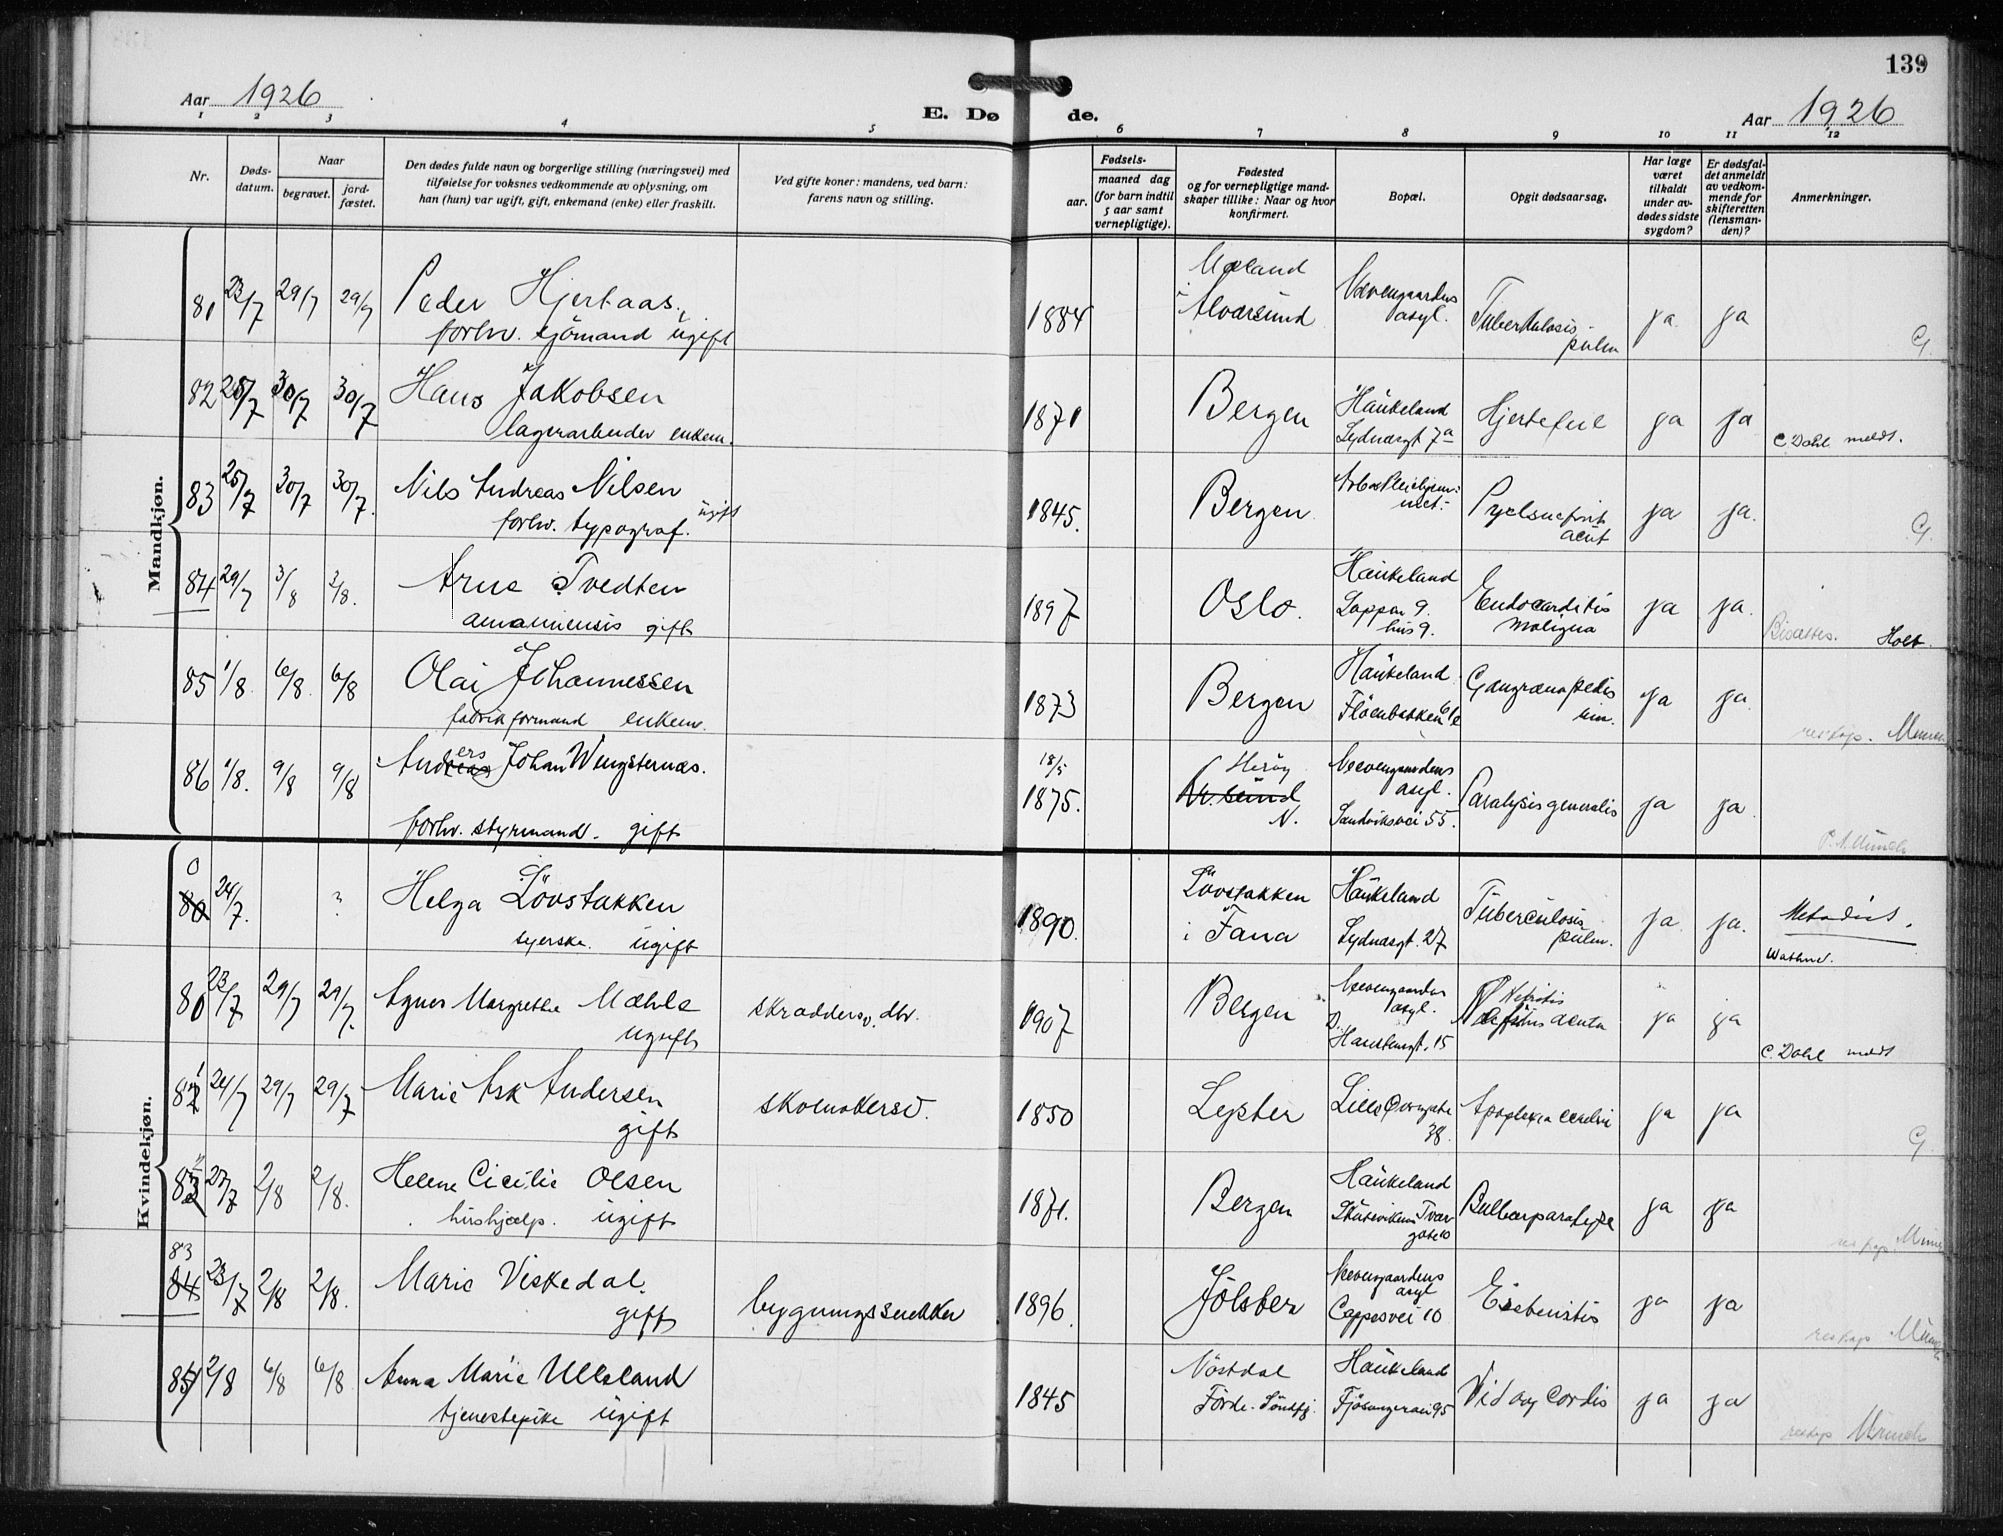 139
Aar 1926
E. Dø de.
Aar 1926
1 2 3 4 5 6 7 8 9 10 11 12
Nr.
Døds-
datum.
Naar
begravet.
jord-
fæstet.
Den dødes fulde navn og borgerlige stilling (næringsvei) med
tilføielse for voksnes vedkommende av oplysning, om
han (hun) var ugift, gift, enkemand (enke) eller fraskilt.
Ved gifte koner: mandens, ved barn:
farens navn og stilling.
Fødsels-
aar.
maaned dag
(for barn indtil
5 aar samt
vernepligtige).
Fødested
og for vernepligtige mand-
skaper tillike: Naar og hvor
konfirmert.
Bopæl.
Opgit dødsaarsag.
Har læge
været
tilkaldt
under av-
dødes sidste
sygdom?
Er dødsfal-
det anmeldt
av vedkom-
mende for
skifteretten
(lensman-
den)?
Anmerkninger.
Mandkjøn.
81 23/7 29/7 29/7 Peder Hjertaas,
forhv. sjömand ugift
1884
i Alversund
Neevengaardens
asyl.
Tuberkulosis
pulm
ja ja
G.
82 28/7 30/7 30/7 Hans Jakobsen
lagerarbeider enkem.
1871 Bergen
Haukeland
Lydnasgt 7a
Hjertefeil
ja ja
C. Dahl meldt.
83 25/7 30/7 30/7. Nils Andreas Nilsen
forhv. typograf. ugift
1845. Bergen
Pyelonefrit
acut
ja ja.
G.
84 29/7 3/8 3/8. Arne Tvedten
gift
1897 Oslo.
Haukeland
Lappen 9.
hus 9.
Endocarditis
maligna
ja ja.
Bisættes. Holt.
85 1/8. 6/8. 6/8 Olai Johannessen
fabrikformand enkem.
1873 Bergen
Haukeland
Gangræna pedis
ja ja.
res kap.
86 1/8. 9/8 9/8 Anders Johan Wengsternæs.
forhv. styrmand. gift
18/5
1875.
Heröy
N.
Neevengaardens
asyl.
Sandviksvei 55.
Paralysis generalis
ja ja
Kvindekjøn.
80 24/7. ? Helga Lövstakken
syerske. ugift
1890.
Lövstakken
i Fana
Haukeland
Lydnasgt. 27
Tuberculosis
pulm.
ja ja.
Wathne.
80 23/7 29/7 29/7. Agnes Margrethe Mæhle
ugift
skræddersv. dtr.
1907 Bergen
Neevengaardens
asyl.
Nefritis
acuta
ja ja
C. Dahl meldt
81 24/7 29/7 29/7 Marie Ask Andersen
gift
skomakersv.
1850 Lyster
Lille Övregate
38.
Apoplexia cerebri
ja ja
G.
82 27/7 2/8 2/8. Helene Cicilie Olsen
hushjælp. ugift
1871. Bergen
Haukeland
Skuteviken Tvær
gate 10
Bulbærparalyse
ja ja
res kap.
83
84 23/7 2/8 2/8. Marie Viskedal
gift
bygningssnekker
1896. Jölster
Neevengaardens
asyl
Cappesvei 10
ja ja
res kap
84 2/8 6/8 6/8 Anna Marie Ulleland
tjenestepike ugift
1845
Förde. Söndfj.
Haukeland
Fjösangerveien 95
Vid aug Cordis
ja ja
res kap